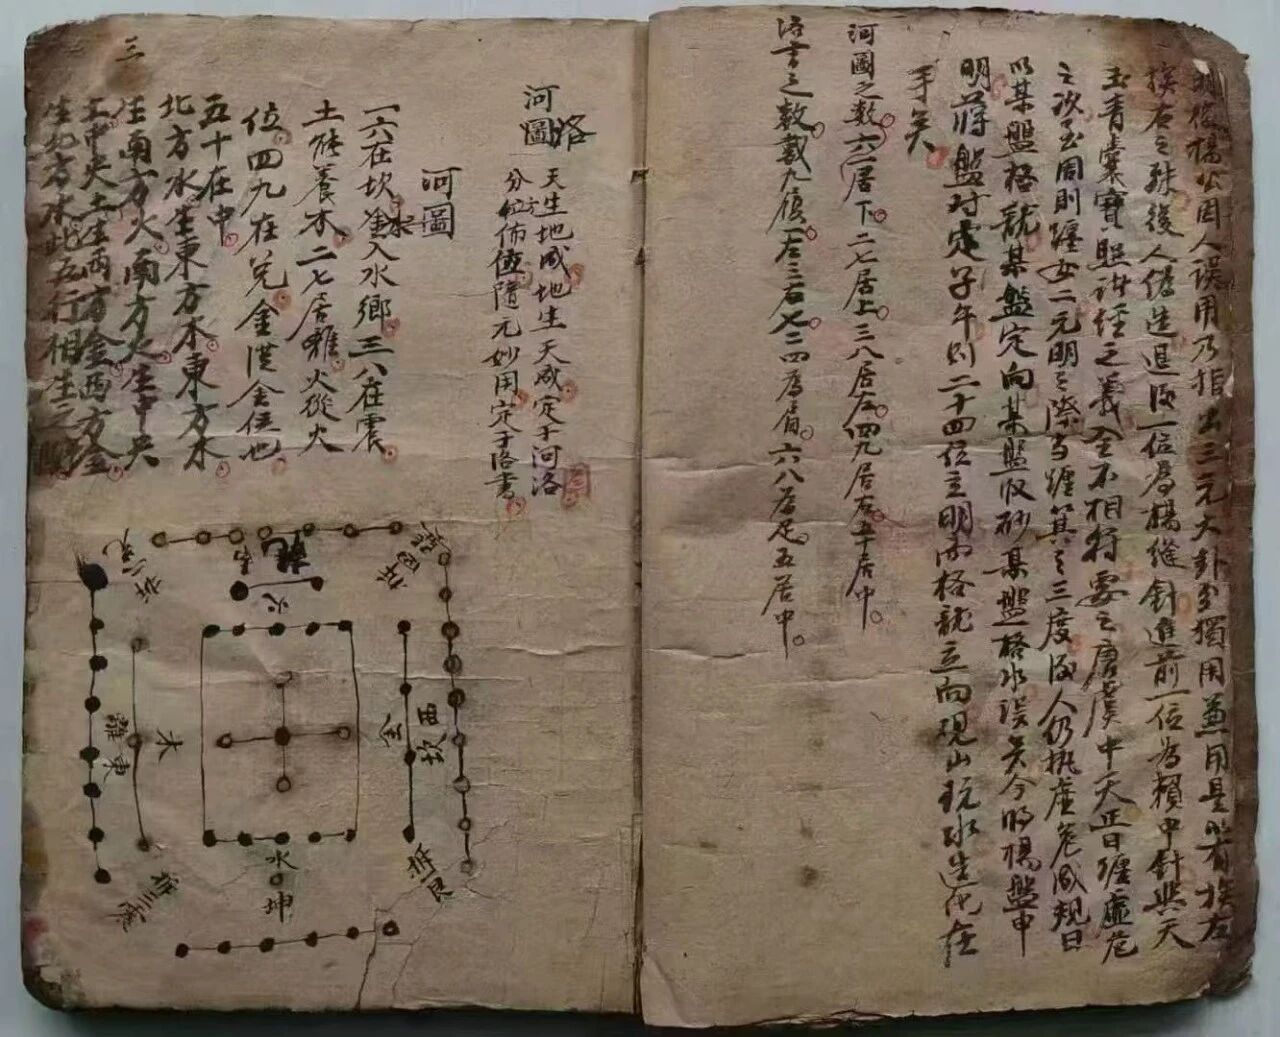 楊公因人誤用乃指出三元大卦到獨用兼用是以有挨左
挨右之殊後人偽造退後一位為楊縫針進前一位為賴中針與天
玉青囊寶照諸經之義全不相符要之唐虞中天正日纏虛危
之次至周則纏女二元明之際馬纏箕之三度後人仍執虛危成規曰
以某盤格龍某盤定向某盤收砂某盤格水誤矣今將楊盤申
明蔣盤对定子午则二十四位立明內格龍立向觀山玩水造化在
手矣
河圖之数一六居下二七居上三八居左四九居右五十居中
洛書之数戴九履一左三右七二四為肩六八為足五居中
三
河洛
圖
天生地成地生天成定于河洛
分位佈值隨元妙用定于洛書
河圖
一六在坎金水入水鄉三八在震
土能養木二七居離火從火
位四九在兌金從金位也
五十在中
北方水生東方木東方木
生南方火南方火生中央
土中央土生西方金西方金
生北方水此五行相生之
龍
南
火
木
東
離
金
西
坎
水
坤